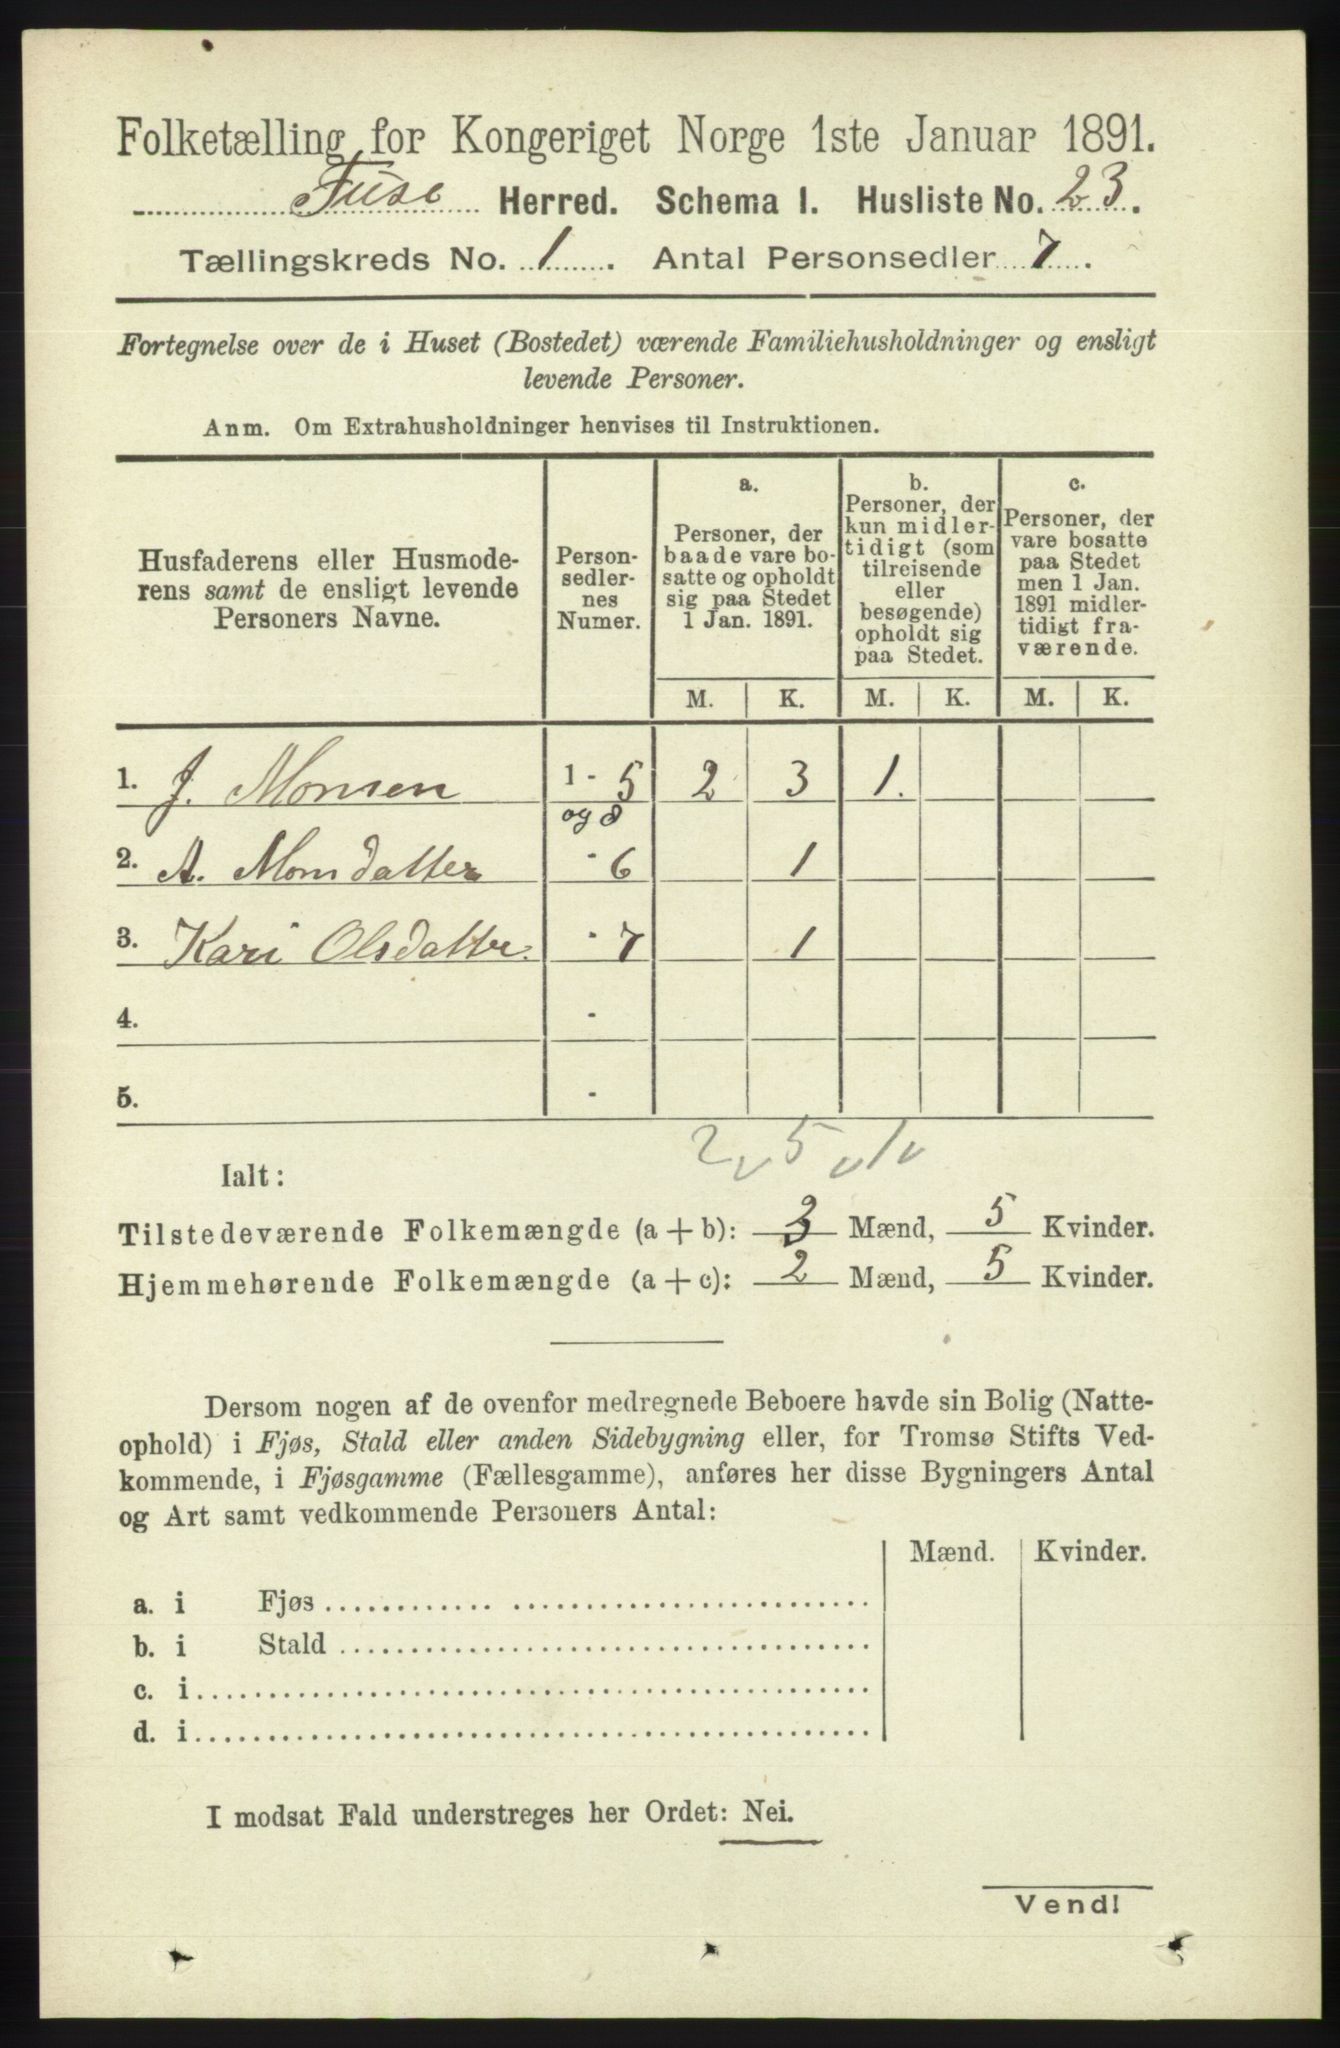 Folketælling for Kongeriget Norge 1ste Januar 1891.
Fuse Herred. Schema I. Husliste No. 23.
Tællingskreds No. 1. Antal Personsedler 7.
Fortegnelse over de i Huset (Bostedet) værende Familiehusholdninger og ensligt
levende Personer.
Anm. Om Extrahusholdninger henvises til Instruktionen.
Husfaderens eller Husmode-
rens samt de ensligt levende
Personers Navne.
Person-
sedler-
nes
Numer.
a.
Personer, der
baade vare bo-
satte og opholdt
sig paa Stedet
1 Jan. 1891.
b.
Personer, der
kun midler-
tidigt (som
tilreisende
eller
besøgende)
opholdt sig
paa Stedet.
c.
Personer, der
vare bosatte
paa Stedet
men 1 Jan.
1891 midler-
tidigt fra-
værende.
M. K. M. K. M. K.
1. J. Monsen 1 - 5 2 3 1.
og 8
2. A. Monsdatter - 6 1
3. Kari Olsdatter. - 7 1
4. -
5. -
2 v 5 v 1 v
Ialt:
Tilstedeværende Folkemængde (a + b): 3 Mænd, 5 Kvinder.
Hjemmehørende Folkemængde (a + c): 2 Mænd, 5 Kvinder.
Dersom nogen af de ovenfor medregnede Beboere havde sin Bolig (Natte-
ophold) i Fjøs, Stald eller anden Sidebygning eller, for Tromsø Stifts Ved-
kommende, i Fjøsgamme (Fællesgamme), anføres her disse Bygningers Antal
og Art samt vedkommende Personers Antal:
Mænd. Kvinder.
a. i Fjøs
b. i Stald
c. i
d. i
I modsat Fald understreges her Ordet: Nei.
Vend!